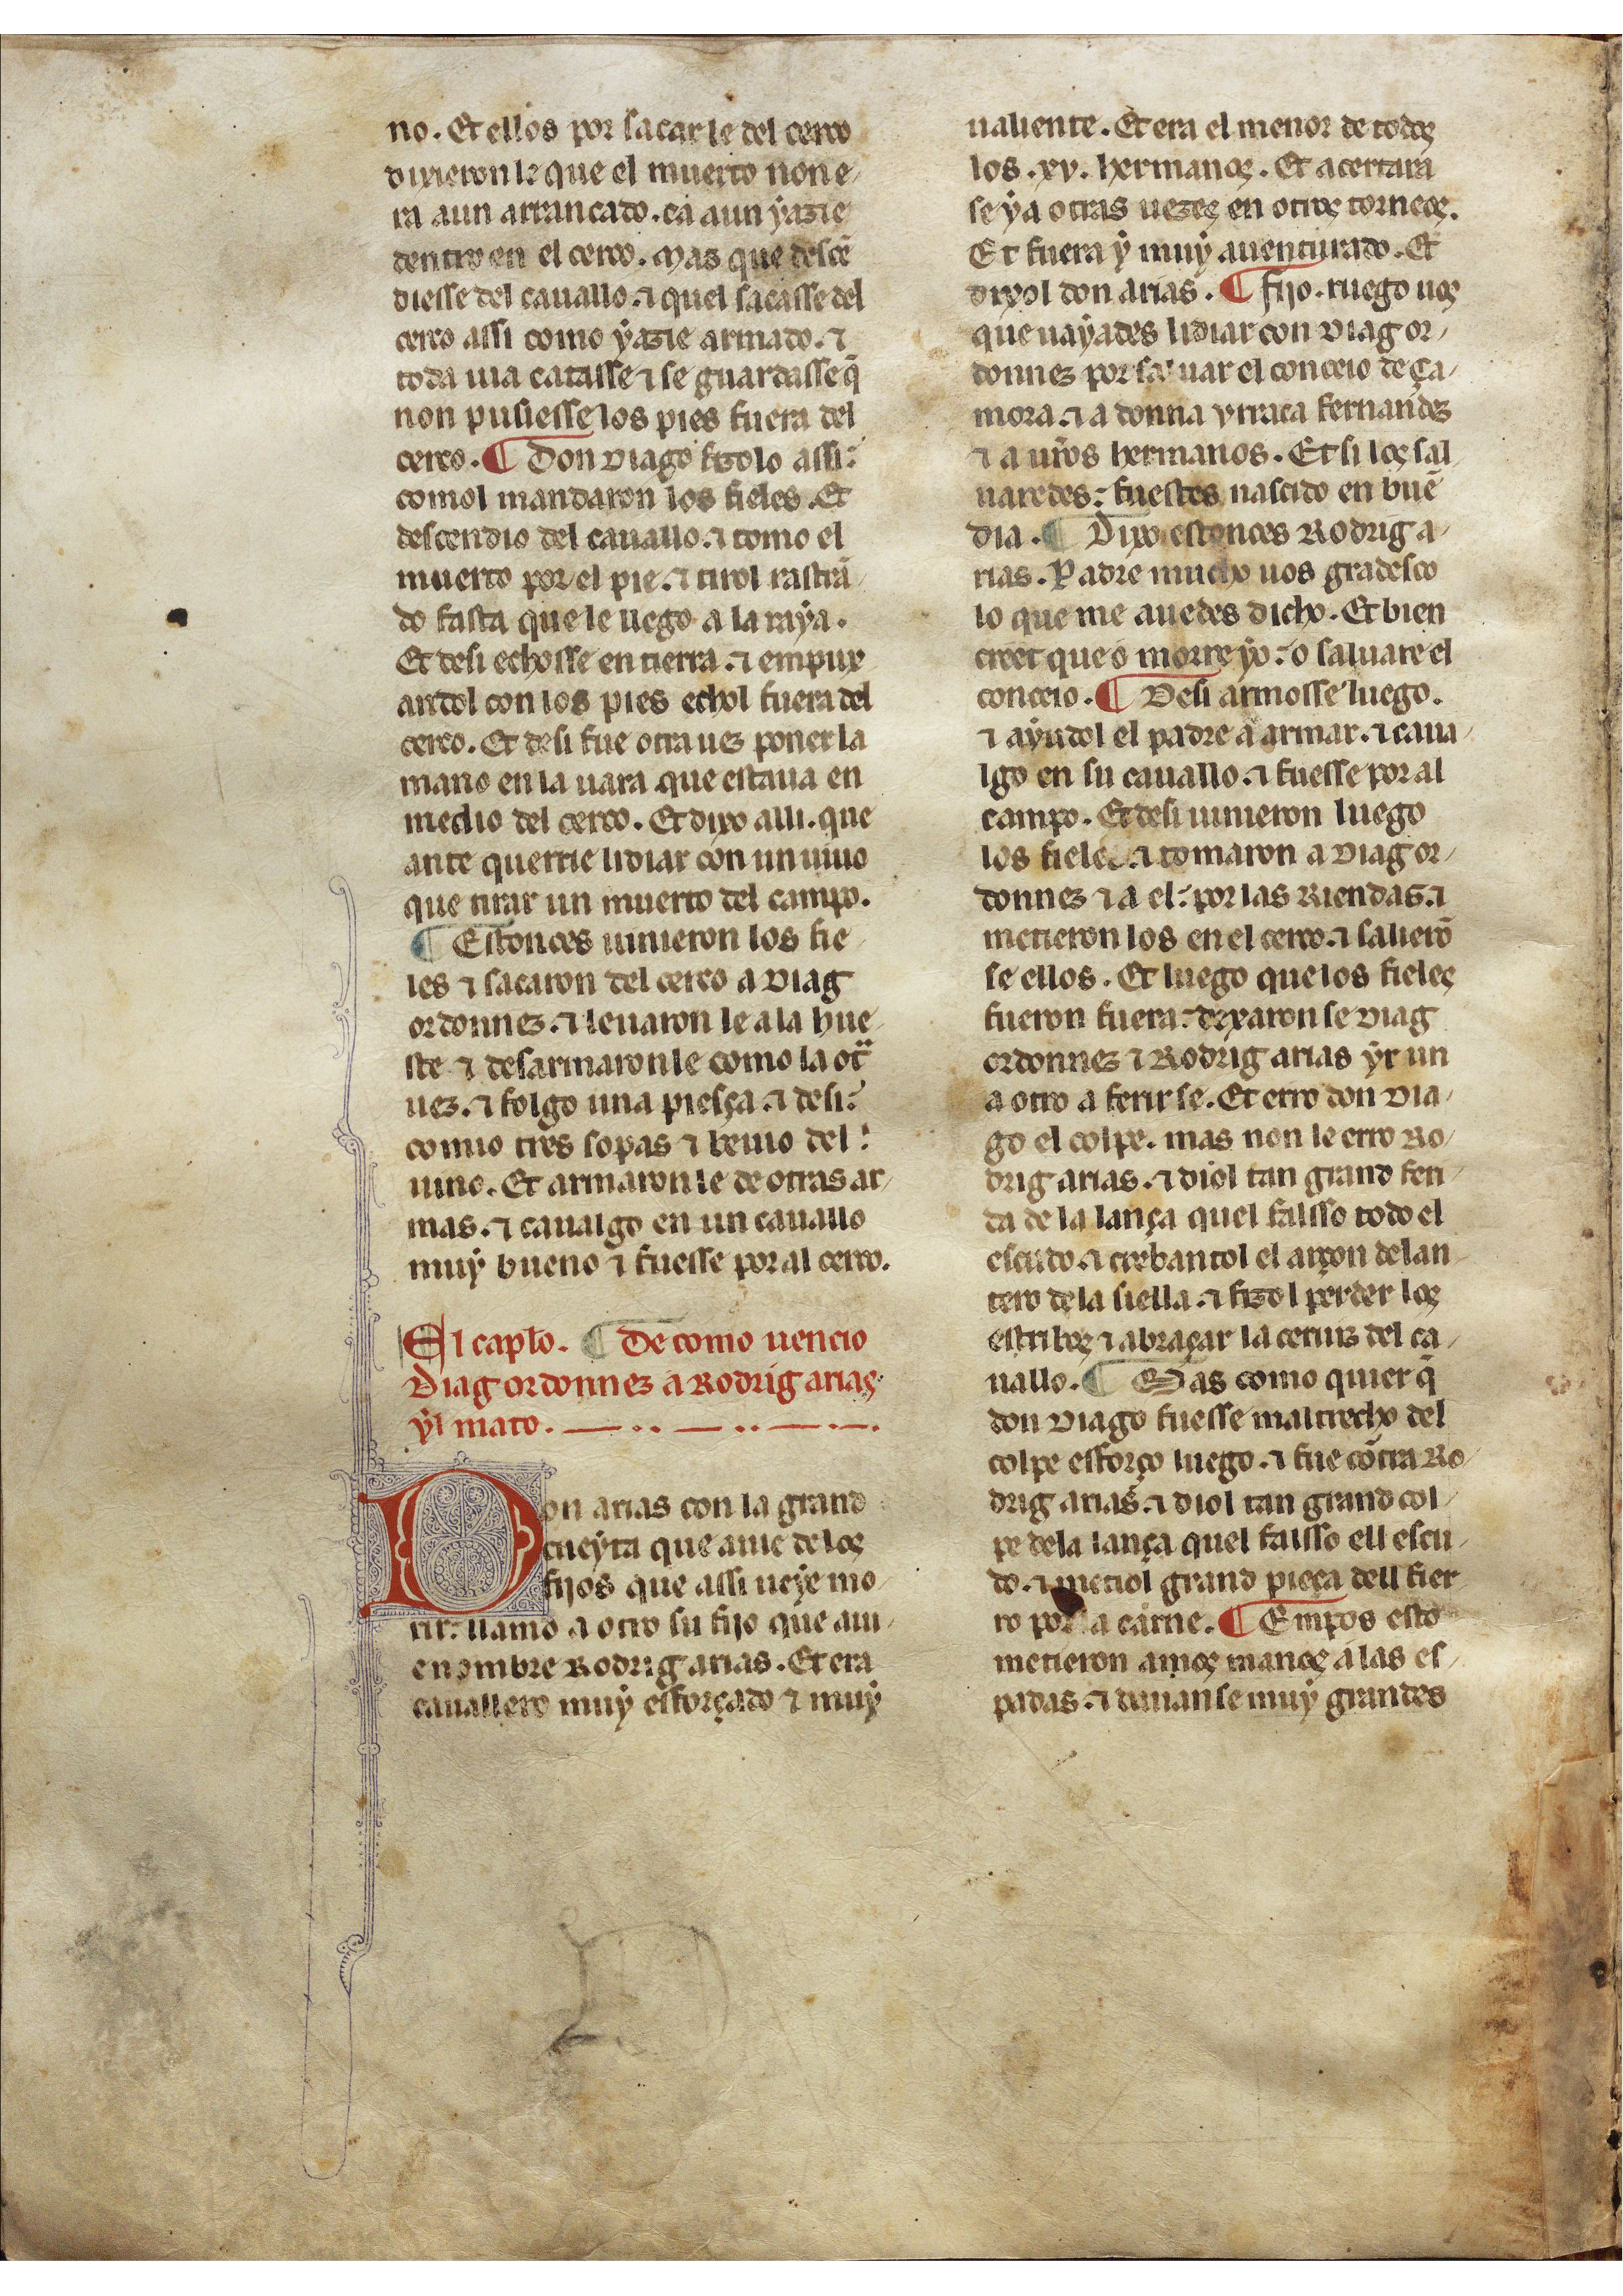 no. Et ellos por sacar le del cerco
dixieron le que el muerto non e-
ra aun arrancado. ca aun yazie
dentro en el cerco. Mas que descẽ
diesse del cauallo. ⁊ quel sacasse del
cerco assi como yazie armado. ⁊
toda uia catasse ⁊ se guardasse q̃
non pusiesse los pies fuera del
cerco. ¶ Don Diago fizolo assi:
comol mandaron los fieles. Et
descendio del cauallo. ⁊ tomo el
muerto por el pie. ⁊ tirol rastrã
do fasta que le llego a la raya.
Et desi echosse en tierra. ⁊ empux
andol con los pies echol fuera del
cerco. Et desi fue otra uez poner la
mano en la uara que estaua en
medio del cerco. Et dixo alli. que
ante querrie lidiar con un uiuo
que tirar un muerto del campo.
¶ Estonces uinieron los fie
les ⁊ sacaron del cerco a Diag
ordonnez. ⁊ leuaron le a la hue-
ste ⁊ desarmaron le como la ot̃
uez. ⁊ folgo una piesça. ⁊ desi:
comio tres sopas ⁊ beuio del:
uino. Et armaron le de otras ar-
mas. ⁊ caualgo en un cauallo
muy bueno ⁊ fuesse por al cerco.
El caplo. ¶ De como uencio
Diag ordonnez a Rodrig arias
yl mato.
Don arias con la grand
cueyta que auie de los
fijos que assi ueye mo-
rir: llamo a otro su fijo que aui-
e nombre Rodrig arias. Et era
cauallero muy esforçado ⁊ muy
ualiente. Et era el menor de todos
los .xv. hermanos. Et acertara
se ya otras uezes en otros torneos.
Et fuera y muy auenturado. Et
dixol don arias. ¶ fijo. ruego uos
que uayades lidiar con Diag or-
donnez por saluar el conceio de Ça-
mora. ⁊ a donna Vrraca fernandez
⁊ a ur̃os hermanos. Et si los sal
uaredes: fuestes nascido en buẽ
dia. ¶ Dixo estonces Rodrig a-
rias. Padre mucho uos gradesco
lo que me auedes dicho. Et bien
creet que o morre yo: o saluare el
conceio. ¶ Desi armosse luego.
⁊ ayudol el padre a armar. ⁊ caua-
lgo en su cauallo. ⁊ fuesse por al
campo. Et desi uinieron luego
los fieles. ⁊ tomaron a Diag or-
donnez ⁊ a el: por las Riendas. ⁊
metieron los en el cerco. ⁊ salierõ
se ellos. Et luego que los fieles
fueron fuera: dexaron se Diag
ordonnez ⁊ Rodrig arias yr un
a otro a ferir se. Et erro don Dia-
go el colpe. mas non le erro Ro-
drig arias. ⁊ diol tan grand feri-
da de la lança quel falsso todo el
escudo. ⁊ crebantol el arzon delan-
tero de la siella. ⁊ fizol perder los
estribos ⁊ abraçar la ceruiz del ca-
uallo. ¶ Mas como quier q̃
don Diago fuesse maltrecho del
colpe esforço luego. ⁊ fue cõtra Ro-
drig arias. ⁊ diol tan grand col-
pe dela lança quel falsso ell escu-
do. ⁊ metiol grand pieça dell fier-
ro por la carne. ¶ Empos esto
metieron amos manos a las es-
padas. ⁊ dauan se muy grandes